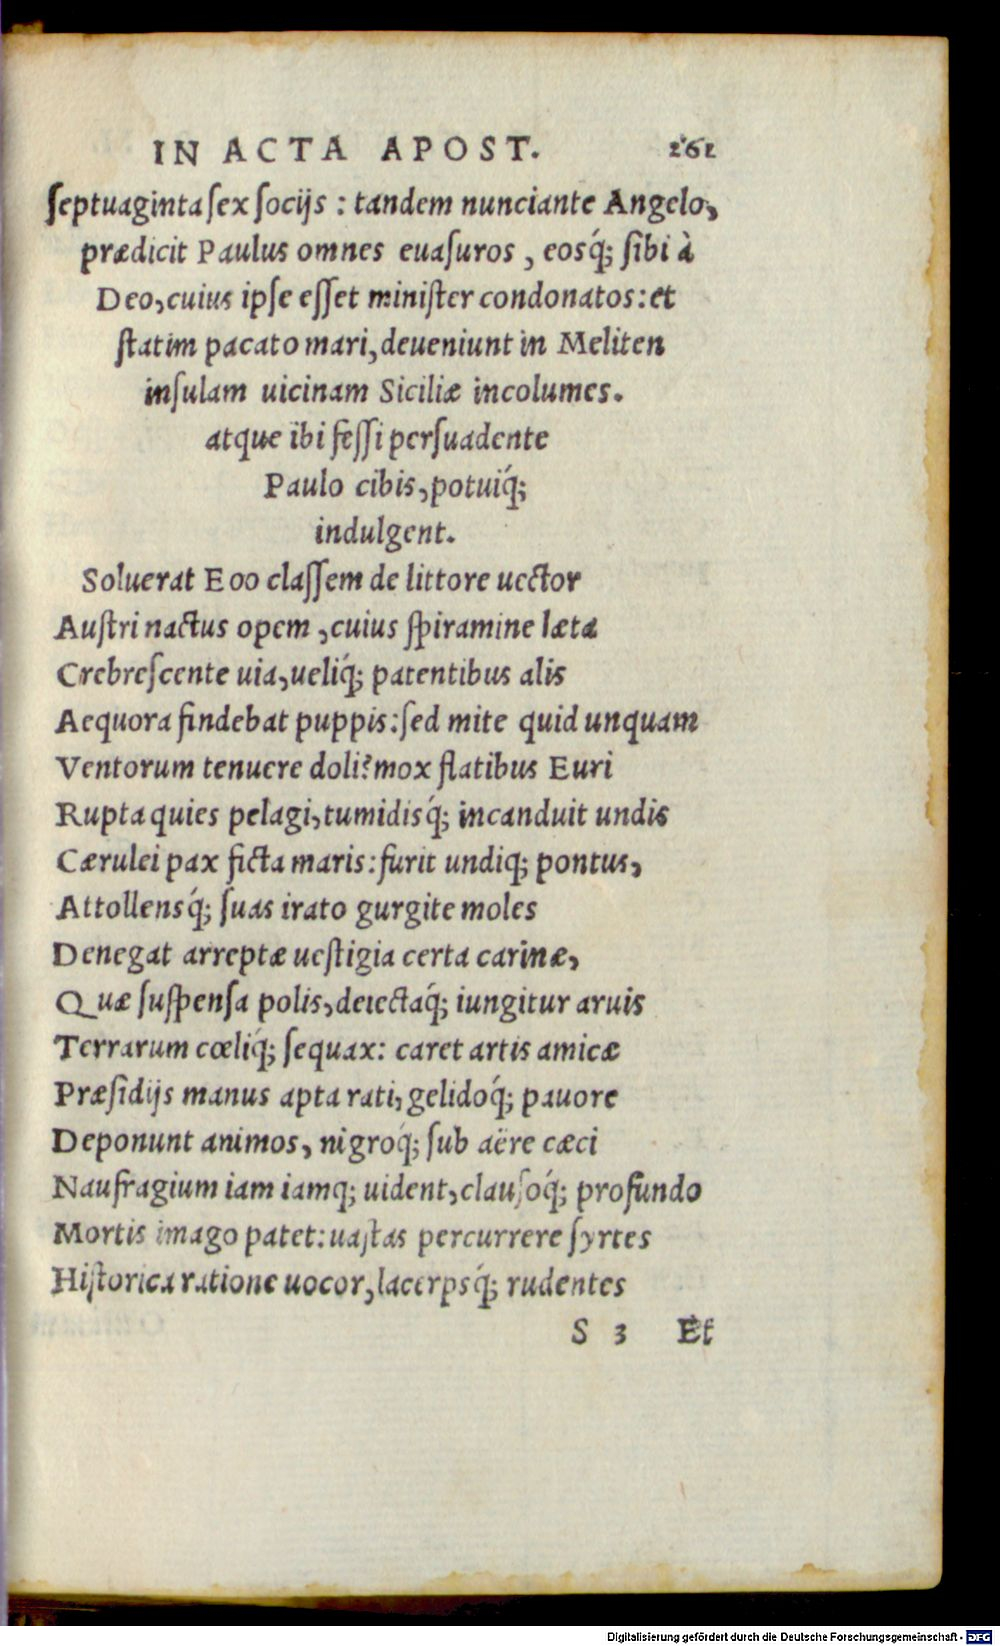 IN ACTA APOST. 261
septuaginta sex socijs : tandem nunciante Angelo,
prædicit Paulus omnes euasuros , eosq́; sibi à
Deo, cuius ipse esset minister condonatos: et
statim pacato mari, deueniunt in Meliten
insulam uicinam Siciliæ incolumes.
atque ibi fessi persuadente
Paulo cibis, potuiq́;
indulgent.
Soluerat Eoo classem de littore uector
Austri nactus opem , cuius spiramine læta
Crebrescente uia, ueliq́; patentibus alis
Aequora findebat puppis: sed mite quid unquam
Ventorum tenuere doli? mox flatibus Euri
Rupta quies pelagi, tumidisq́; incanduit undis
Cærulei pax ficta maris: furit undiq; pontus,
Attollensq́; suas irato gurgite moles
Denegat arreptæ uestigia certa carinæ,
Quæ suspensa polis, deiectaq́; iungitur aruis
Terrarum cœliq́; sequax: caret artis amicæ
Præsidijs manus apta rati, gelidoq́; pauore
Deponunt animos, nigroq́; sub aëre cæci
Naufragium iam iamq; uident, clausoq́; profundo
Mortis imago patet: uastas percurrere syrtes
Historica ratione uocor, lacerosq́; rudentes
S 3 Et
Digitalisierung gefördert durch die Deutsche Forschungsgemeinschaft - DFG